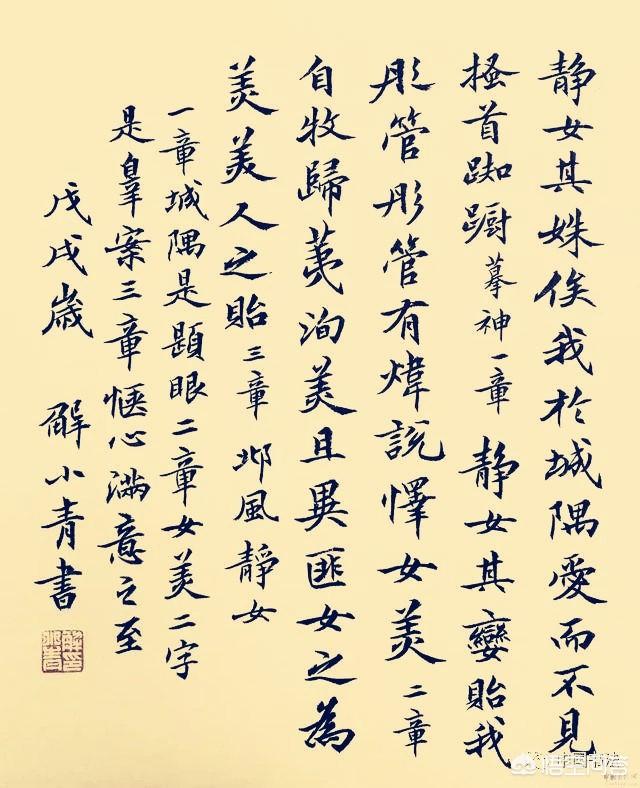 静女其姝俟我於城隅愛而不見
搔首踟躕摹神一章静女其孌貽我
彤管彤管有煒説懌女美二章
自牧歸荑洵美且異匪女之為
美美人之貽三章邶風靜女
一章城隅是題眼二章女美二字
是案三章愜心滿意之至
戊戌歲 解小青書
悟空问答